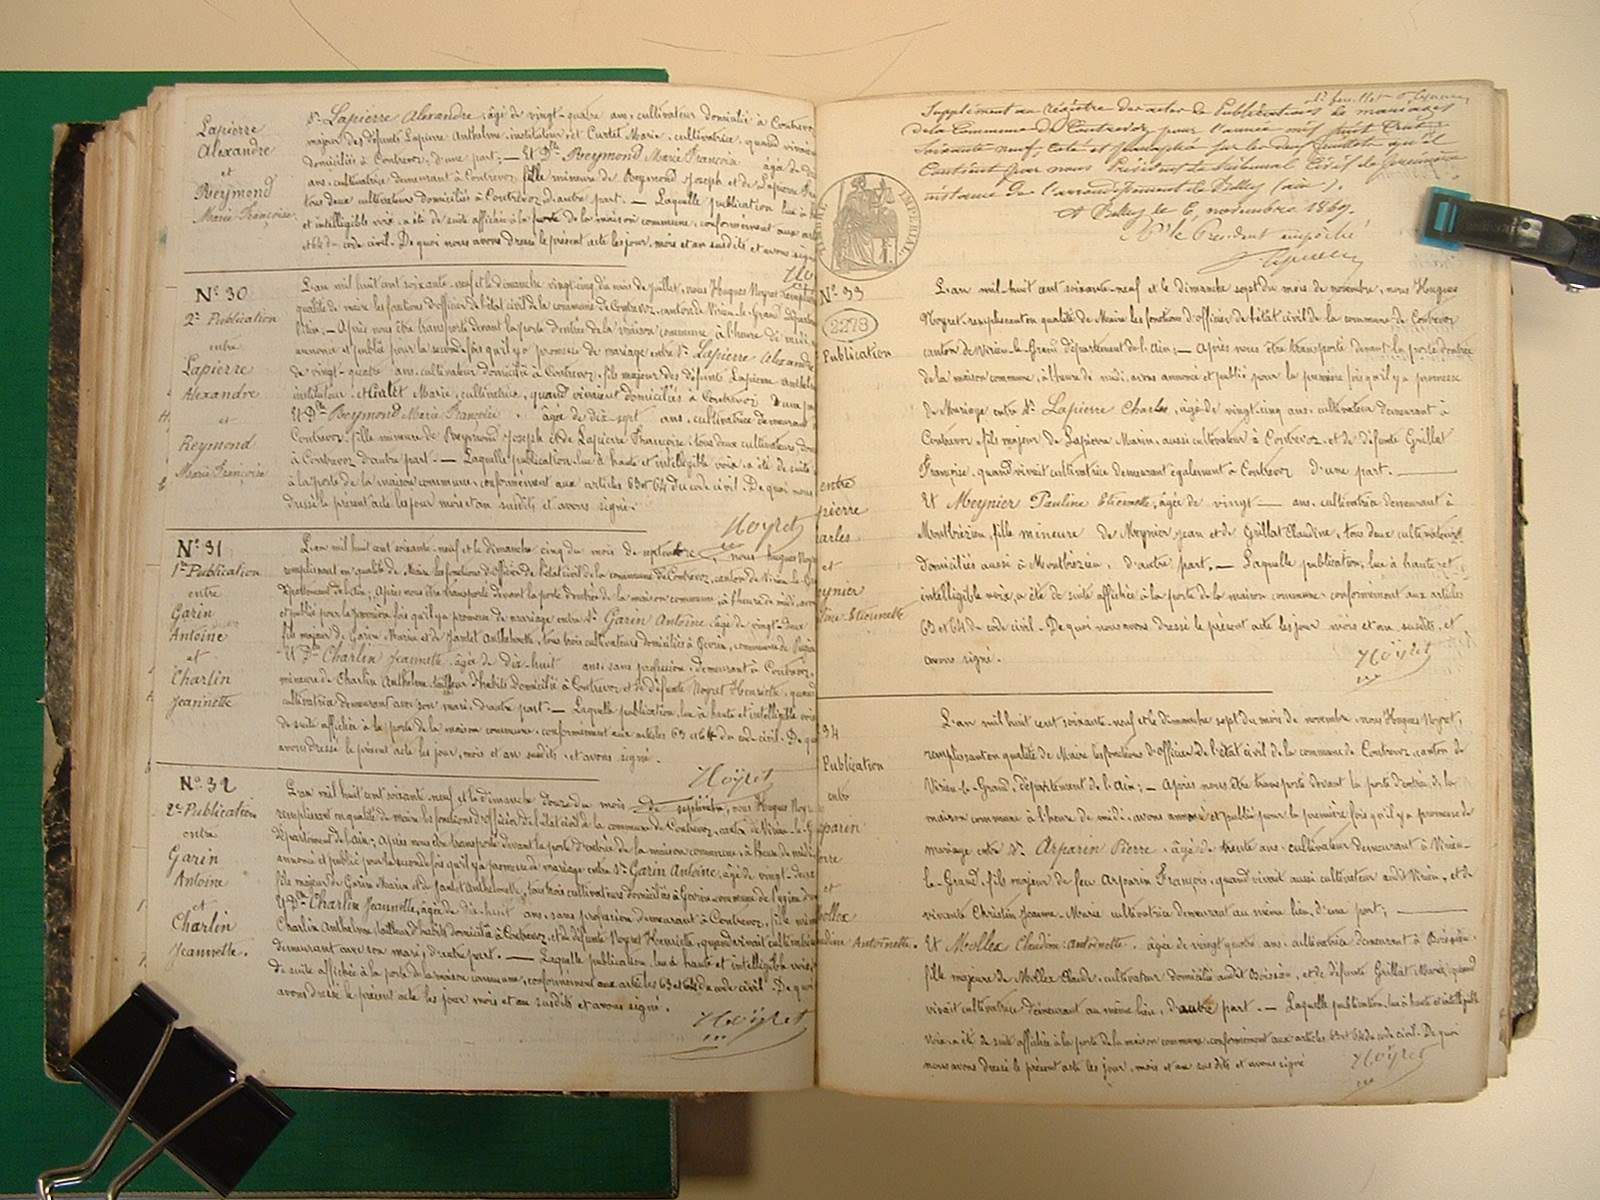 Lapierre
Alexandre
et
Reymond
Marie Françoise
Sr. Lapierre Alexandre, âgé de vingt-quatre ans, cultivateur domicilié à Contrevoz
majeur des défunts Lapierre Anthelme, instituteur et Curtet Marie, cultivatrice, quand vivaient
domiciliés à Contrevoz, d'une part; — Et Dlle Reymond Marie Françoise âgée de
ans, cultivatrice demeurant à Contrevoz, fille mineure de Reymond Joseph et de Lapierre
tous deux cultivateurs domiciliés à Contrevoz, d'autre part. — Laquelle publication lue à
et intelligible voix, a été de suite affichée à la porte de la maison commune, conformément aux
et 64 du code civil. De quoi nous avons dressé le présent acte les jour, mois et an susdits et avons
No. 30
2e Publication
entre
Lapierre
Alexandre
et
Reymond
Marie Françoise
L'an mil huit cent soixante-neuf et le dimanche vingt-cinq du mois de juillet, nous Hugues Noyret
qualité de maire les fonctions d'officier de l'état civil de la commune de Contrevoz, canton de Virieu-le-Grand
l'Ain; — Après nous être transporté devant la porte d'entrée de la maison commune, à l'heure de midi,
annoncé et publié pour la seconde fois qu'il y a promesse de mariage entre Sr. Lapierre Alexandre
de vingt-quatre ans, cultivateur domicilié à Contrevoz, fils majeur des défunts Lapierre
instituteur, et Marie, cultivatrice, quand vivaient domiciliés à Contrevoz d'une
Et Dlle Reymond Marie Françoise, âgée de dix-sept ans, cultivatrice demeurant
Contrevoz, fille mineure de Reymond Joseph et de Lapierre Françoise, tous deux cultivateurs
à Contrevoz d'autre part. — Laquelle publication, lue à haute et intelligible voix, a été de suite
à la porte de la maison commune, conformément aux articles 63 et 64 du code civil. De quoi nous
dressé le présent acte les jour mois et an susdits et avons signé.
Noyret
No. 31
1re Publication
entre
Garin
Antoine
et
Charlin
Jeannette
L'an mil huit cent soixante-neuf et le dimanche cinq du mois de septembre, nous Hugues
remplissant en qualité de Maire les fonctions d'officier de l'état civil de la commune de Contrevoz, canton de Virieu-le-
département de l'Ain; Après nous être transporté devant la porte d'entrée de la maison commune, à l'heure de midi,
et publié pour la première fois qu'il y a promesse de mariage entre Sr. Garin Antoine, âgé de vingt-deux
fils majeur de Garin Marin et de Jantet Anthelmette, tous trois cultivateurs domiciliés à commune de
Et Dlle Charlin Jeannette, âgée de dix-huit ans, sans profession, demeurant à Contrevoz,
mineure de Charlin Anthelme, tailleur d'habits domicilié à Contrevoz et de défunte Noyret Henriette, quand
cultivatrice demeurant avec son mari, d'autre part. — Laquelle publication, lue à haute et intelligible voix
de suite affichée à la porte de la maison commune, conformément aux articles 63 et 64 du code civil. De quoi
avons dressé le présent acte les jour, mois et an susdits et avons signé.
Noÿret
No. 32
2e Publication
entre
Garin
Antoine
et
Charlin
Jeannette.
L'an mil huit cent soixante-neuf et le dimanche douze du mois de septembre, nous Hugues
remplissant en qualité de maire les fonctions d'officier de l'état civil de la commune de Contrevoz, canton de Virieu-le-
département de l'Ain; Après nous être transporté devant la porte d'entrée de la maison commune, à l'heure de midi
annoncé et publié pour la seconde fois qu'il y a promesse de mariage entre Sr. Garin Antoine, âgé de vingt-deux
fils majeur de Garin Marin et de Jantet Anthelmette, tous trois cultivateurs domiciliés à commune de
Et Dlle Charlin Jeannette, âgée de dix-huit ans, sans profession demeurant à Contrevoz, fille
Charlin Anthelme, tailleur d'habits domicilié à Contrevoz, et de défunte Noyret Henriette, quand vivait cultivatrice
demeurant avec son mari, d'autre part. — Laquelle publication, lue à haute et intelligible voix,
de suite affichée à la porte de la maison commune, conformément aux articles 63 et 64 du code civil. De quoi
avons dressé le présent acte les jour mois et an susdits et avons signé.
Noÿret
Supplément au registre des actes de Publications de mariages
de la Commune de Contrevoz pour l'année mil huit cent
soixante neuf, coté et paraphé sur les deux feuillets qu'il
contient par nous Président du tribunal Civil de première
instance de l'arrondissement de Belley (Ain).
A Belley le 6, novembre 1869.
Mr. le Président empêché
TIMBRE IMPÉRIAL
No. 33
2278
Publication
entre
pierre
arles
et
eynier
line Etiennette
L'an mil-huit cent soixante-neuf et le dimanche sept du mois de novembre, nous Hugues
Noyret, remplissant en qualité de Maire les fonctions d'officier de l'état civil de la commune de Contrevoz
canton de Virieu-le-Grand département de l'Ain; — Après nous être transporté devant la porte d'entrée
de la maison commune, à l'heure de midi, avons annoncé et publié pour la première fois qu'il y a promesse
de Mariage entre Sr. Lapierre Charles, âgé de vingt-cinq ans, cultivateur demeurant à
Contrevoz, fils majeur de Lapierre Marin, aussi cultivateur à Contrevoz, et de défunte Grillat
Françoise, quand vivait cultivatrice demeurant également à Contrevoz d'une part. —
Et Meynier Pauline Etiennette, âgée de vingt — ans, cultivatrice demeurant à
Montbrézieu, fille mineure de Meynier Jean et de Grillat Claudine, tous deux cultivateurs
domiciliés aussi à Montbrézieu, d'autre part. — Laquelle publication, lue à haute et
intelligible voix, a été de suite affichée à la porte de la maison commune, conformément aux articles
63 et 64 du code civil. De quoi nous avons dressé le présent acte les jour mois et an susdits, et
avons signé.
Noÿret
34
Publication
entre
parin
ierre
et
ollex
udine Antoinette.
L'an mil huit cent soixante-neuf et le dimanche sept du mois de novembre, nous Hugues Noyret,
remplissant en qualité de Maire les fonctions d'officier de l'état civil de la commune de Contrevoz, canton de
Virieu-le-Grand, département de l'Ain; — Après nous être transporté devant la porte d'entrée de la
maison commune à l'heure de midi, avons annoncé et publié pour la première fois qu'il y a promesse de
mariage entre Sr. Arparin Pierre, âgé de trente ans, cultivateur demeurant à Virieu-
le-Grand, fils majeur de feu Arparin François, quand vivait aussi cultivateur audit Virieu, et de
vivante Christin Jeanne-Marie cultivatrice demeurant au même lieu, d'une part; —
Et Mollex Claudine Antoinette, âgée de vingt quatre ans, cultivatrice demeurant à Boissieu,
fille majeure de Mollex Claude, cultivateur domicilié audit Boissieu, et de défunte Grillat Marie, quand
vivait cultivatrice demeurant au même lieu, d'autre part. — Laquelle publication, lue à haute et intelligible
voix, a été de suite affichée à la porte de la maison commune, conformément aux articles 63 et 64 du code civil. De quoi
nous avons dressé le présent acte les jour, mois et an susdits et avons signé
Noÿret